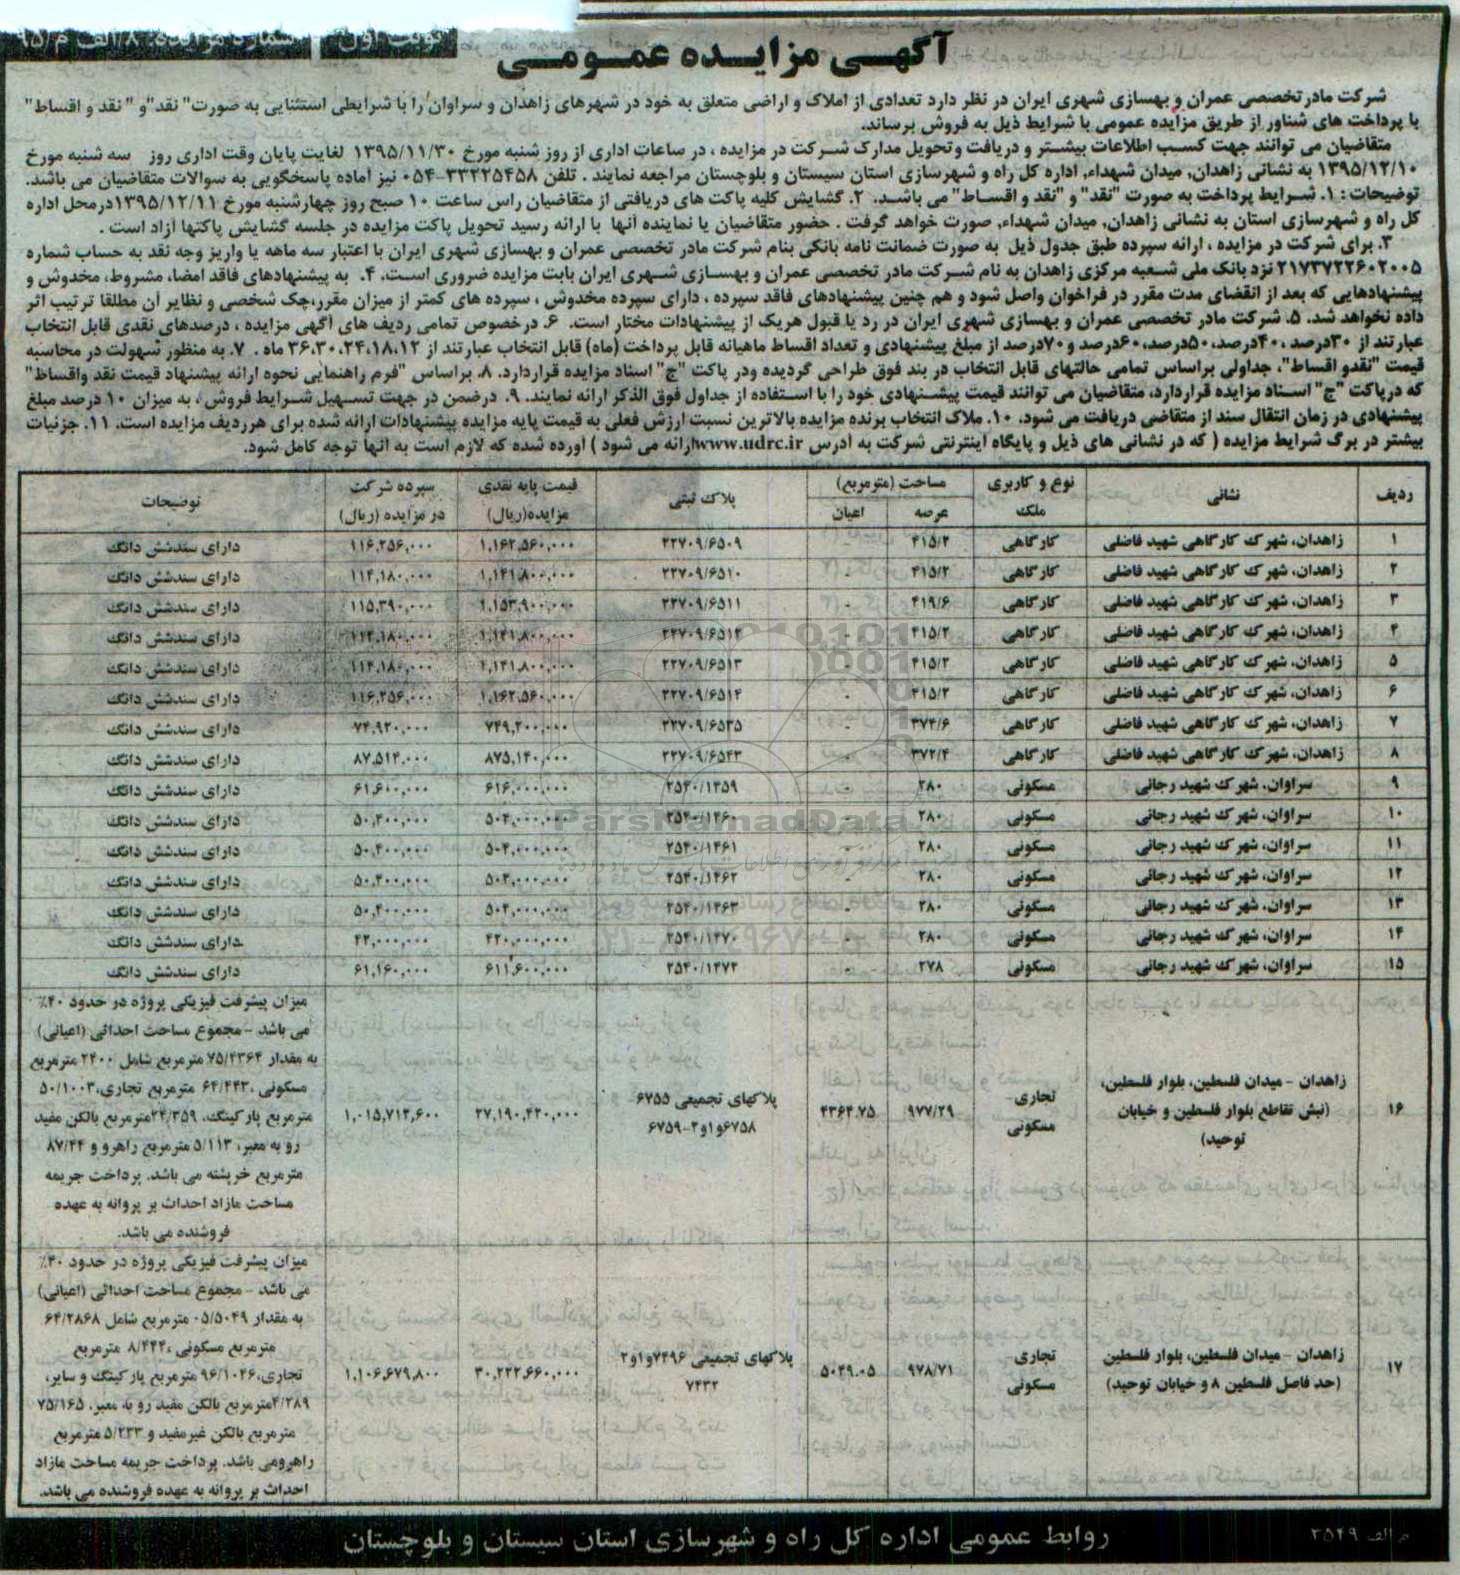 نوبت اول
شماره مزایده: ۸/الف م/۹۵
آگهی مزایده عمومی
شرکت مادرتخصصی عمران و بهسازی شهری ایران در نظر دارد تعدادی از املاک و اراضی متعلق به خود در شهرهای زاهدان و سراوان را با شرایطی استثنایی به صورت" نقد"و " نقد و اقساط"
با پرداخت های شناور از طریق مزایده عمومی با شرایط ذیل به فروش برساند.
متقاضیان می توانند جهت کسب اطلاعات بیشتر و دریافت وتحویل مدارک شرکت در مزایده ، در ساعات اداری از روز شنبه مورخ ۱۳۹۵/۱۱/۳۰ لغایت پایان وقت اداری روز سه شنبه مورخ
۱۳۹۵/۱۲/۱۰ به نشانی زاهدان، میدان شهداء، اداره کل راه و شهرسازی استان سیستان و بلوچستان مراجعه نمایند . تلفن ۳۳۲۲۵۴۵۸-۰۵۴ نیز آماده پاسخگویی به سوالات متقاضیان می باشد.
توضیحات : ۱. شرایط پرداخت به صورت "نقد" و "نقد و اقساط" می باشد. ۲. گشایش کلیه پاکت های دریافتی از متقاضیان راس ساعت ۱۰ صبح روز چهارشنبه مورخ ۱۳۹۵/۱۲/۱۱درمحل اداره
کل راه و شهرسازی استان به نشانی زاهدان، میدان شهداء، صورت خواهد گرفت . حضور متقاضیان یا نماینده آنها با ارائه رسید تحویل پاکت مزایده در جلسه گشایش پاکتها آزاد است .
۳. برای شرکت در مزایده ، ارائه سپرده طبق جدول ذیل به صورت ضمانت نامه بانکی بنام شرکت مادر تخصصی عمران و بهسازی شهری ایران با اعتبار سه ماهه یا واریز وجه نقد به حساب شماره
۲۱۷۳۷۲۲۶۰۲۰۰۵ نزد بانک ملی شعبه مرکزی زاهدان به نام شرکت مادر تخصصی عمران و بهسازی شهری ایران بابت مزایده ضروری است. ۴. به پیشنهادهای فاقد امضاء، مشروط، مخدوش و
پیشنهادهایی که بعد از انقضای مدت مقرر در فراخوان واصل شود و هم چنین پیشنهادهای فاقد سپرده ، دارای سپرده مخدوش ، سپرده های کمتر از میزان مقرر،چک شخصی و نظایر آن مطلقا ترتیب اثر
داده نخواهد شد. ۵. شرکت مادر تخصصی عمران و بهسازی شهری ایران در رد یا قبول هریک از پیشنهادات مختار است. ۶. درخصوص تمامی ردیف های آگهی مزایده ، درصدهای نقدی قابل انتخاب
عبارتند از ۳۰درصد ،۴۰درصد، ۵۰درصد، ۶۰درصد و ۷۰درصد از مبلغ پیشنهادی و تعداد اقساط ماهیانه قابل پرداخت (ماه) قابل انتخاب عبارتند از ۳۶،۳۰،۲۴،۱۸،۱۲ ماه . ۷. به منظور سهولت در محاسبه
قیمت "نقدو اقساط"، جداولی براساس تمامی حالتهای قابل انتخاب در بند فوق طراحی گردیده ودر پاکت "ج" اسناد مزایده قراردارد. ۸. براساس "فرم راهنمایی نحوه ارائه پیشنهاد قیمت نقد واقساط"
که درپاکت "ج" اسناد مزایده قراردارد، متقاضیان می توانند قیمت پیشنهادی خود را با استفاده از جداول فوق الذکر ارائه نمایند. ۹. درضمن در جهت تسهیل شرایط فروش ، به میزان ۱۰ درصد مبلغ
پیشنهادی در زمان انتقال سند از متقاضی دریافت می شود. ۱۰. ملاک انتخاب برنده مزایده بالاترین نسبت ارزش فعلی به قیمت پایه مزایده پیشنهادات ارائه شده برای هرردیف مزایده است. ۱۱. جزئیات
بیشتر در برگ شرایط مزایده ( که در نشانی های ذیل و پایگاه اینترنتی شرکت به آدرس www.udrc.irارائه می شود ) آورده شده که لازم است به آنها توجه کامل شود.
ردیف نشانی نوع و کاربری ملک مساحت (مترمربع) عرصه اعیان پلاک ثبتی قیمت پایه نقدی مزایده(ریال) سپرده شرکت در مزایده (ریال) توضیحات
۱ زاهدان، شهرک کارگاهی شهید فاضلی کارگاهی ۴۱۵/۲ - ۲۲۷۰۹/۶۵۰۹ ۱،۱۶۲،۵۶۰،۰۰۰ ۱۱۶،۲۵۶،۰۰۰ دارای سندشش دانگ
۲ زاهدان، شهرک کارگاهی شهید فاضلی کارگاهی ۴۱۵/۲ - ۲۲۷۰۹/۶۵۱۰ ۱،۱۴۱،۸۰۰،۰۰۰ ۱۱۴،۱۸۰،۰۰۰ دارای سندشش دانگ
۳ زاهدان، شهرک کارگاهی شهید فاضلی کارگاهی ۴۱۹/۶ - ۲۲۷۰۹/۶۵۱۱ ۱،۱۵۳،۹۰۰،۰۰۰ ۱۱۵،۳۹۰،۰۰۰ دارای سندشش دانگ
۴ زاهدان، شهرک کارگاهی شهید فاضلی کارگاهی ۴۱۵/۲ - ۲۲۷۰۹/۶۵۱۲ ۱،۱۴۱،۸۰۰،۰۰۰ ۱۱۴،۱۸۰،۰۰۰ دارای سندشش دانگ
۵ زاهدان، شهرک کارگاهی شهید فاضلی کارگاهی ۴۱۵/۲ - ۲۲۷۰۹/۶۵۱۳ ۱،۱۴۱،۸۰۰،۰۰۰ ۱۱۴،۱۸۰،۰۰۰ دارای سندشش دانگ
۶ زاهدان، شهرک کارگاهی شهید فاضلی کارگاهی ۴۱۵/۲ - ۲۲۷۰۹/۶۵۱۴ ۱،۱۶۲،۵۶۰،۰۰۰ ۱۱۶،۲۵۶،۰۰۰ دارای سندشش دانگ
۷ زاهدان، شهرک کارگاهی شهید فاضلی کارگاهی ۳۷۴/۶ - ۲۲۷۰۹/۶۵۳۵ ۷۴۹،۲۰۰،۰۰۰ ۷۴،۹۲۰،۰۰۰ دارای سندشش دانگ
۸ زاهدان، شهرک کارگاهی شهید فاضلی کارگاهی ۳۷۲/۴ - ۲۲۷۰۹/۶۵۴۳ ۸۷۵،۱۴۰،۰۰۰ ۸۷،۵۱۴،۰۰۰ دارای سندشش دانگ
۹ سراوان، شهرک شهید رجائی مسکونی ۲۸۰ - ۲۵۴۰/۱۴۵۹ ۶۱۶،۰۰۰،۰۰۰ ۶۱،۶۰۰،۰۰۰ دارای سندشش دانگ
۱۰ سراوان، شهرک شهید رجائی مسکونی ۲۸۰ - ۲۵۴۰/۱۴۶۰ ۵۰۴،۰۰۰،۰۰۰ ۵۰،۴۰۰،۰۰۰ دارای سندشش دانگ
۱۱ سراوان، شهرک شهید رجائی مسکونی ۲۸۰ - ۲۵۴۰/۱۴۶۱ ۵۰۴،۰۰۰،۰۰۰ ۵۰،۴۰۰،۰۰۰ دارای سندشش دانگ
۱۲ سراوان، شهرک شهید رجائی مسکونی ۲۸۰ - ۲۵۴۰/۱۴۶۲ ۵۰۴،۰۰۰،۰۰۰ ۵۰،۴۰۰،۰۰۰ دارای سندشش دانگ
۱۳ سراوان، شهرک شهید رجائی مسکونی ۲۸۰ - ۲۵۴۰/۱۴۶۳ ۵۰۴،۰۰۰،۰۰۰ ۵۰،۴۰۰،۰۰۰ دارای سندشش دانگ
۱۴ سراوان، شهرک شهید رجائی مسکونی ۲۸۰ - ۲۵۴۰/۱۴۷۰ ۴۲۰،۰۰۰،۰۰۰ ۴۲،۰۰۰،۰۰۰ دارای سندشش دانگ
۱۵ سراوان، شهرک شهید رجائی مسکونی ۲۷۸ - ۲۵۴۰/۱۴۷۲ ۶۱۱،۶۰۰،۰۰۰ ۶۱،۱۶۰،۰۰۰ دارای سندشش دانگ
۱۶ زاهدان – میدان فلسطین، بلوار فلسطین، (نبش تقاطع بلوار فلسطین و خیابان توحید) تجاری مسکونی ۹۷۷/۲۹ ۴۳۶۴.۷۵ پلاکهای تجمیعی ۶۷۵۵ و۶۷۵۸و۱و۲-۶۷۵۹ ۲۷،۱۹۰،۴۲۰،۰۰۰ ۱،۰۱۵،۷۱۲،۶۰۰
میزان پیشرفت فیزیکی پروژه در حدود ۴۰٪
می باشد –مجموع مساحت احداثی (اعیانی)
به مقدار ۷۵/۴۳۶۴ مترمربع شامل ۲۴۰۰ مترمربع
مسکونی ،۶۴/۴۴۳ مترمربع تجاری،۵۰/۱۰۰۳
مترمربع پارکینگ، ۲۴/۳۵۹مترمربع بالکن مفید
رو به معبر، ۵/۱۱۳ مترمربع راهرو و ۸۷/۴۴
مترمربع خرپشته می باشد. پرداخت جریمه
مساحت مازاد احداث بر پروانه به عهده
فروشنده می باشد.
۱۷ زاهدان – میدان فلسطین، بلوار فلسطین (حد فاصل فلسطین ۸ و خیابان توحید) تجاری مسکونی ۹۷۸/۷۱ ۵۰۴۹.۰۵ پلاکهای تجمیعی ۷۴۹۶و۱و۲ ۷۴۳۲ ۳۰،۲۲۲،۶۶۰،۰۰۰ ۱،۱۰۶،۶۷۹،۸۰۰
میزان پیشرفت فیزیکی پروژه در حدود ۴۰٪
می باشد – مجموع مساحت احداثی (اعیانی)
به مقدار ۰۵/۵۰۴۹ مترمربع شامل ۶۴/۲۸۶۸
مترمربع مسکونی ،۸/۴۴۴ مترمربع
تجاری،۹۶/۱۰۲۶ مترمربع پارکینگ و سایر،
۴/۲۸۹مترمربع بالکن مفید رو به معبر، ۷۵/۱۶۵
مترمربع بالکن غیرمفید و ۵/۲۳۳ مترمربع
راهرومی باشد. پرداخت جریمه مساحت مازاد
احداث بر پروانه به عهده فروشنده می باشد.
ParsNamadData
م الف ۳۵۴۹
روابط عمومی اداره کل راه و شهرسازی استان سیستان و بلوچستان